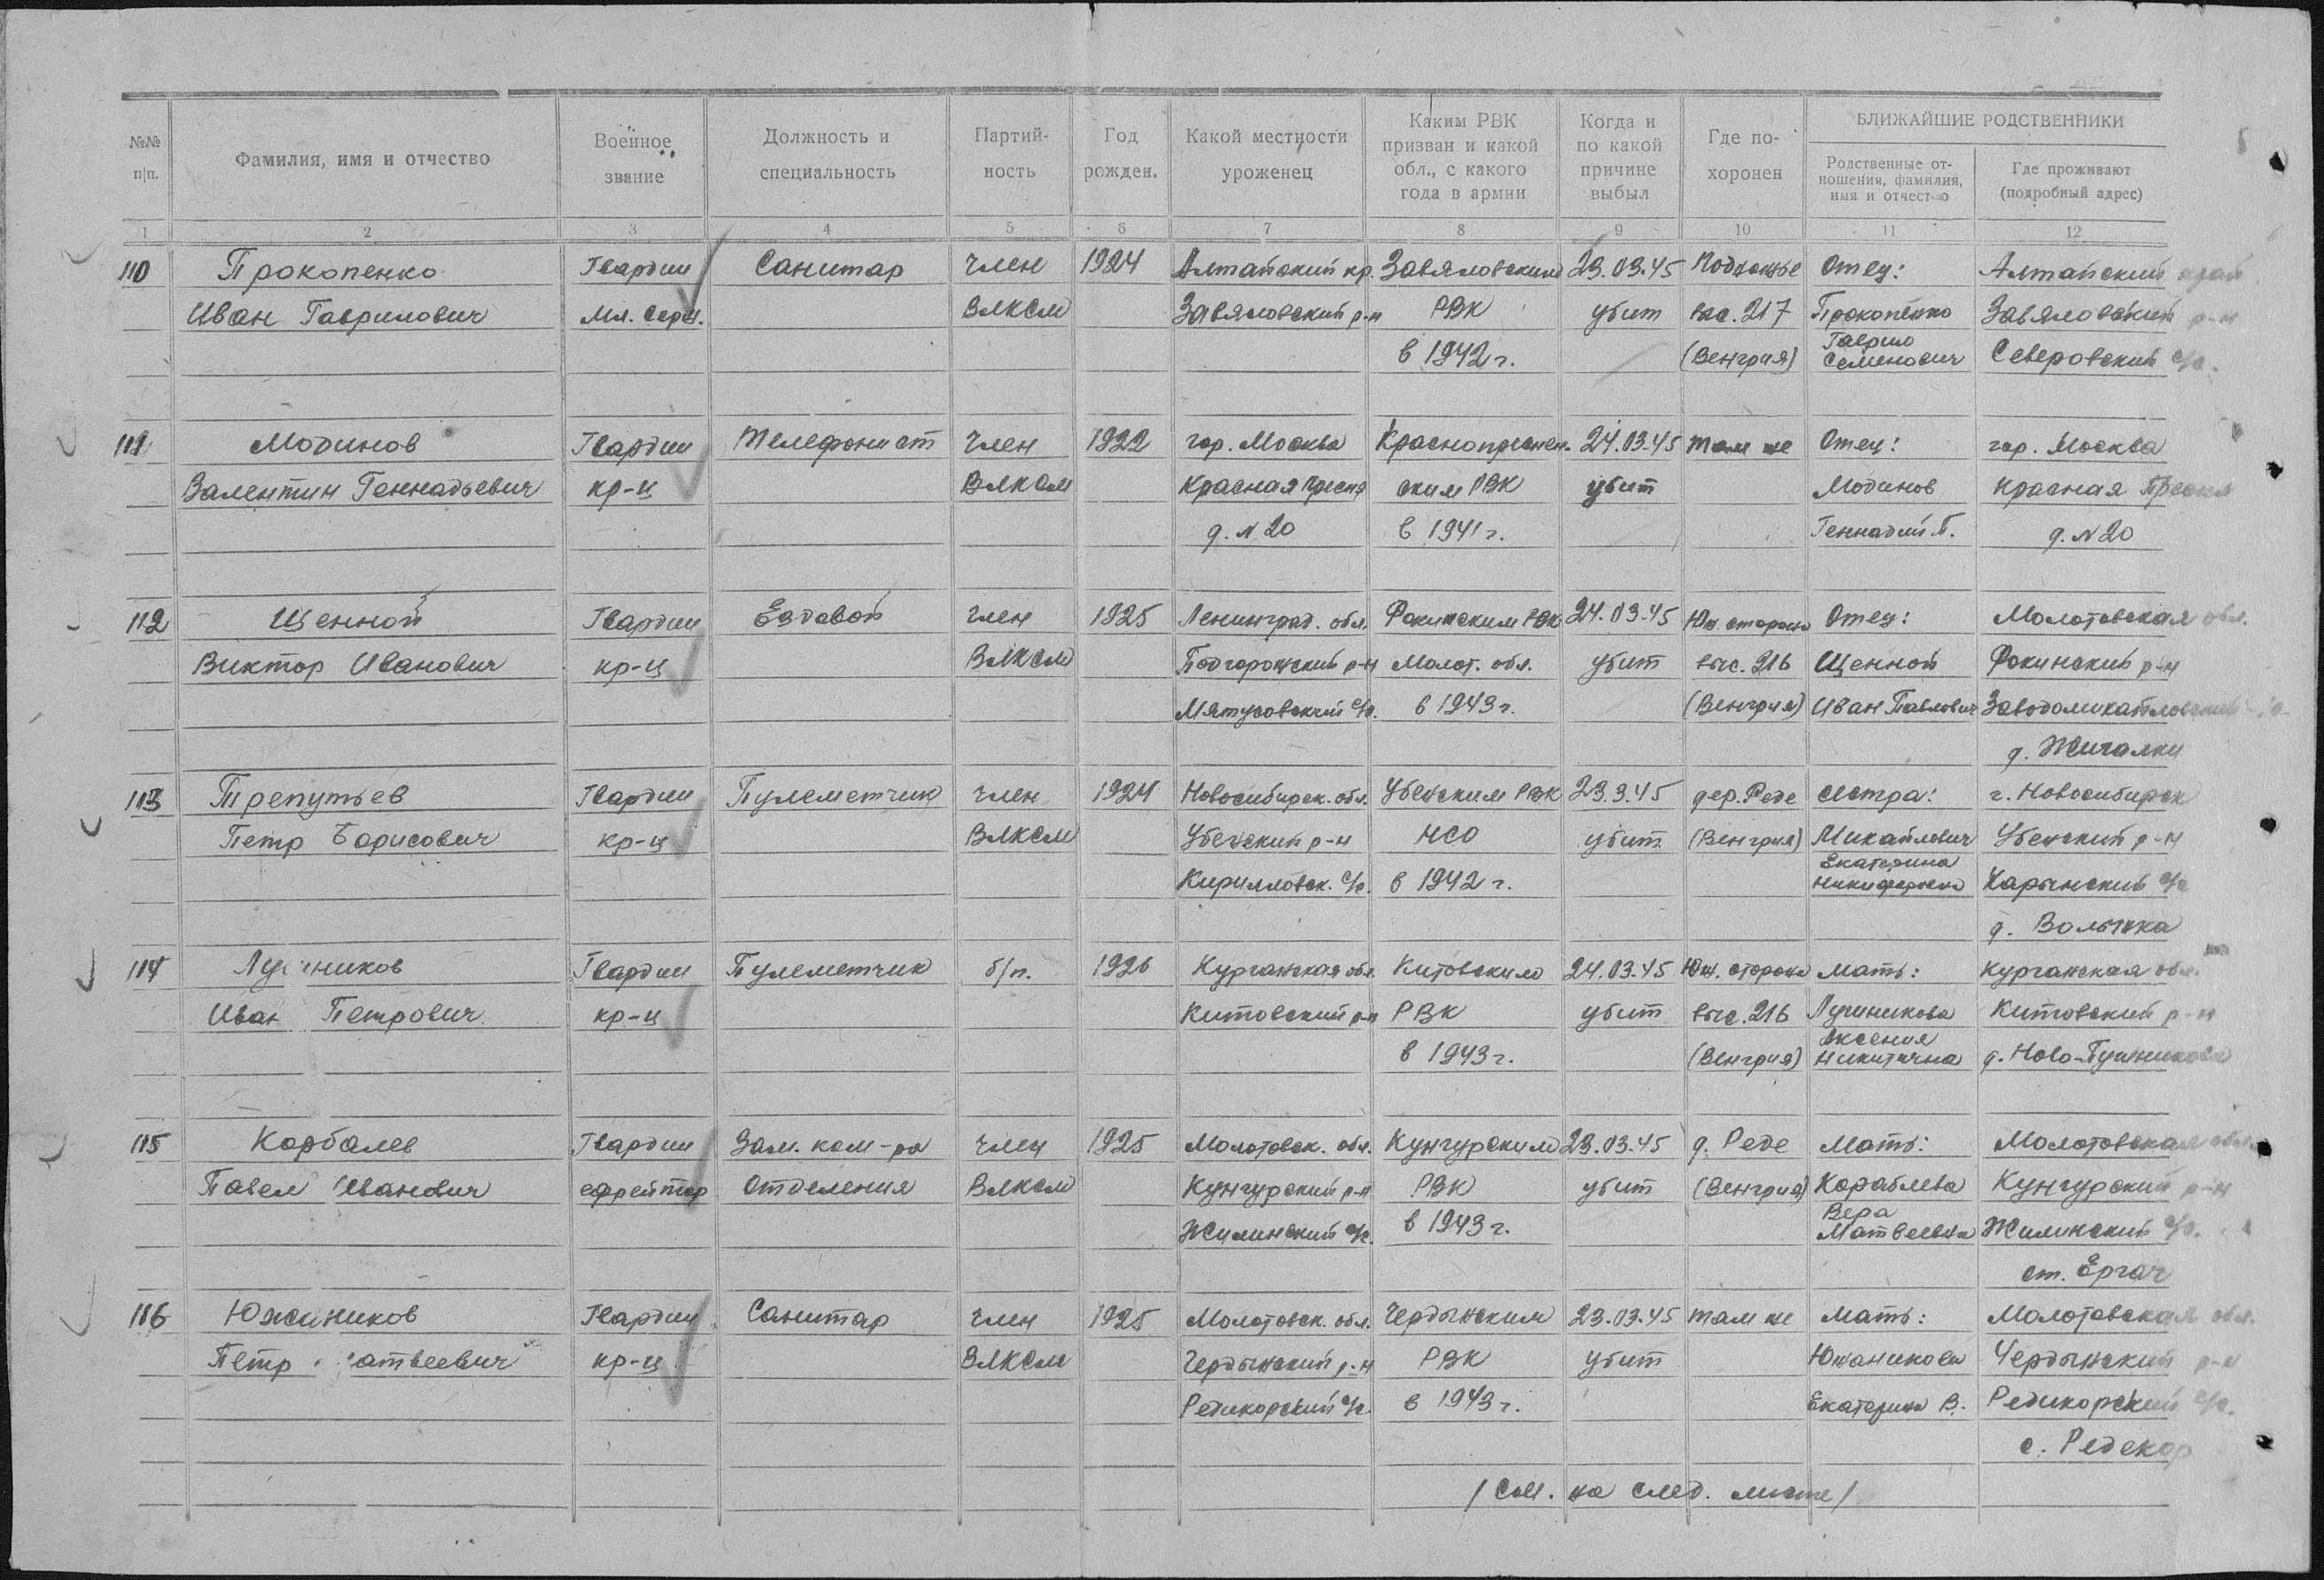 №№ п|п.
Фамилия, имя и отчество
Военное звание
Должность и специальность
Партий-ность
Год рожден.
Какой местности уроженец
Каким РВК призван и какой обл., с какого года в армии
Когда и по какой причине выбыл
Где по-хоронен
БЛИЖАЙШИЕ РОДСТВЕННИКИ
Родственные от-ношения, фамилия, имя и отчество
Где проживают (подробный адрес)
1 2 3 4 5 6 7 8 9 10 11 12
110 Прокопенко Гвардии Санитар член 1924 Алтайский кр. Завяловским 23.03.45 Подножье Отец: Алтайский край
Иван Гаврилович Мл. Серж. ВЛКСМ Завяловский р-н РВК убит выс. 217 Прокопенко Завяловский р-н
в 1942 г. (Венгрия) Гаврило Семенович Северовский с/с.
111 Модинов Гвардии Телефонист член 1922 гор. Москва Краснопреснен- 24.03.45 там же Отец: гор. Москва
Валентин Геннадьевич кр-ц ВЛКСМ Красная Пресня ским РВК убит Модинов Красная Пресня
д. N 20 в 1941 г. Геннадий П. д. N 20
112 Щенной Гвардии Ездовой член 1925 Ленинград. обл. Фокинским РВК 24.03.45 Юж. сторона Отец: Молотовская обл.
Виктор Иванович кр-ц ВЛКСМ Подгорожский р-н Молот. обл. убит выс. 216 Щенной Фокинский р-н
Мятусовский с/с. в 1943 г. (Венгрия) Иван Павлович
д. Жигалки
113 Трепутьев Гвардии Пулеметчик член 1924 Новосибирск. обл. Убенским РВК 23.3.45 дер. Реде сестра: г. Новосибирск
Петр Борисович кр-ц ВЛКСМ Убенский р-н НСО убит (Венгрия) Михайлович Убенский р-н
Кирилловск. с/с. в 1942 г. Екатерина с/с
д.
114 Гвардии Пулеметчик б/п. 1926 Курганская обл. Китовским 24.03.45 Юж. сторона Мать: Курганская обл.
Иван Петрович кр-ц Китовский р-н РВК убит выс. 216 Китовский р-н
в 1943 г. (Венгрия) Аксения Никитична
115 Корбалев Гвардии Зам. ком-ра член 1925 Молотовск. обл. Кунгурским 23.03.45 д. Реде Мать: Молотовская обл.
Павел Иванович ефрейтор Отделения ВЛКСМ Кунгурский р-н РВК убит (Венгрия) Кораблева Кунгурский р-н
Жилинский с/с. в 1943 г. Вера Матвеевна Жилинский с/с.
ст. Ергач
116 Южаников Гвардии Санитар член 1925 Молотовск. обл. Чердынским 23.03.45 там же Мать: Молотовская обл.
Петр атвеевич кр-ц ВЛКСМ Чердынский р-н РВК убит Южаникова Чердынский р-н
Редикорский с/с. в 1943 г. Екатерина В. Редикорский с/с.
с. Редекор
/ См. на след. листе /